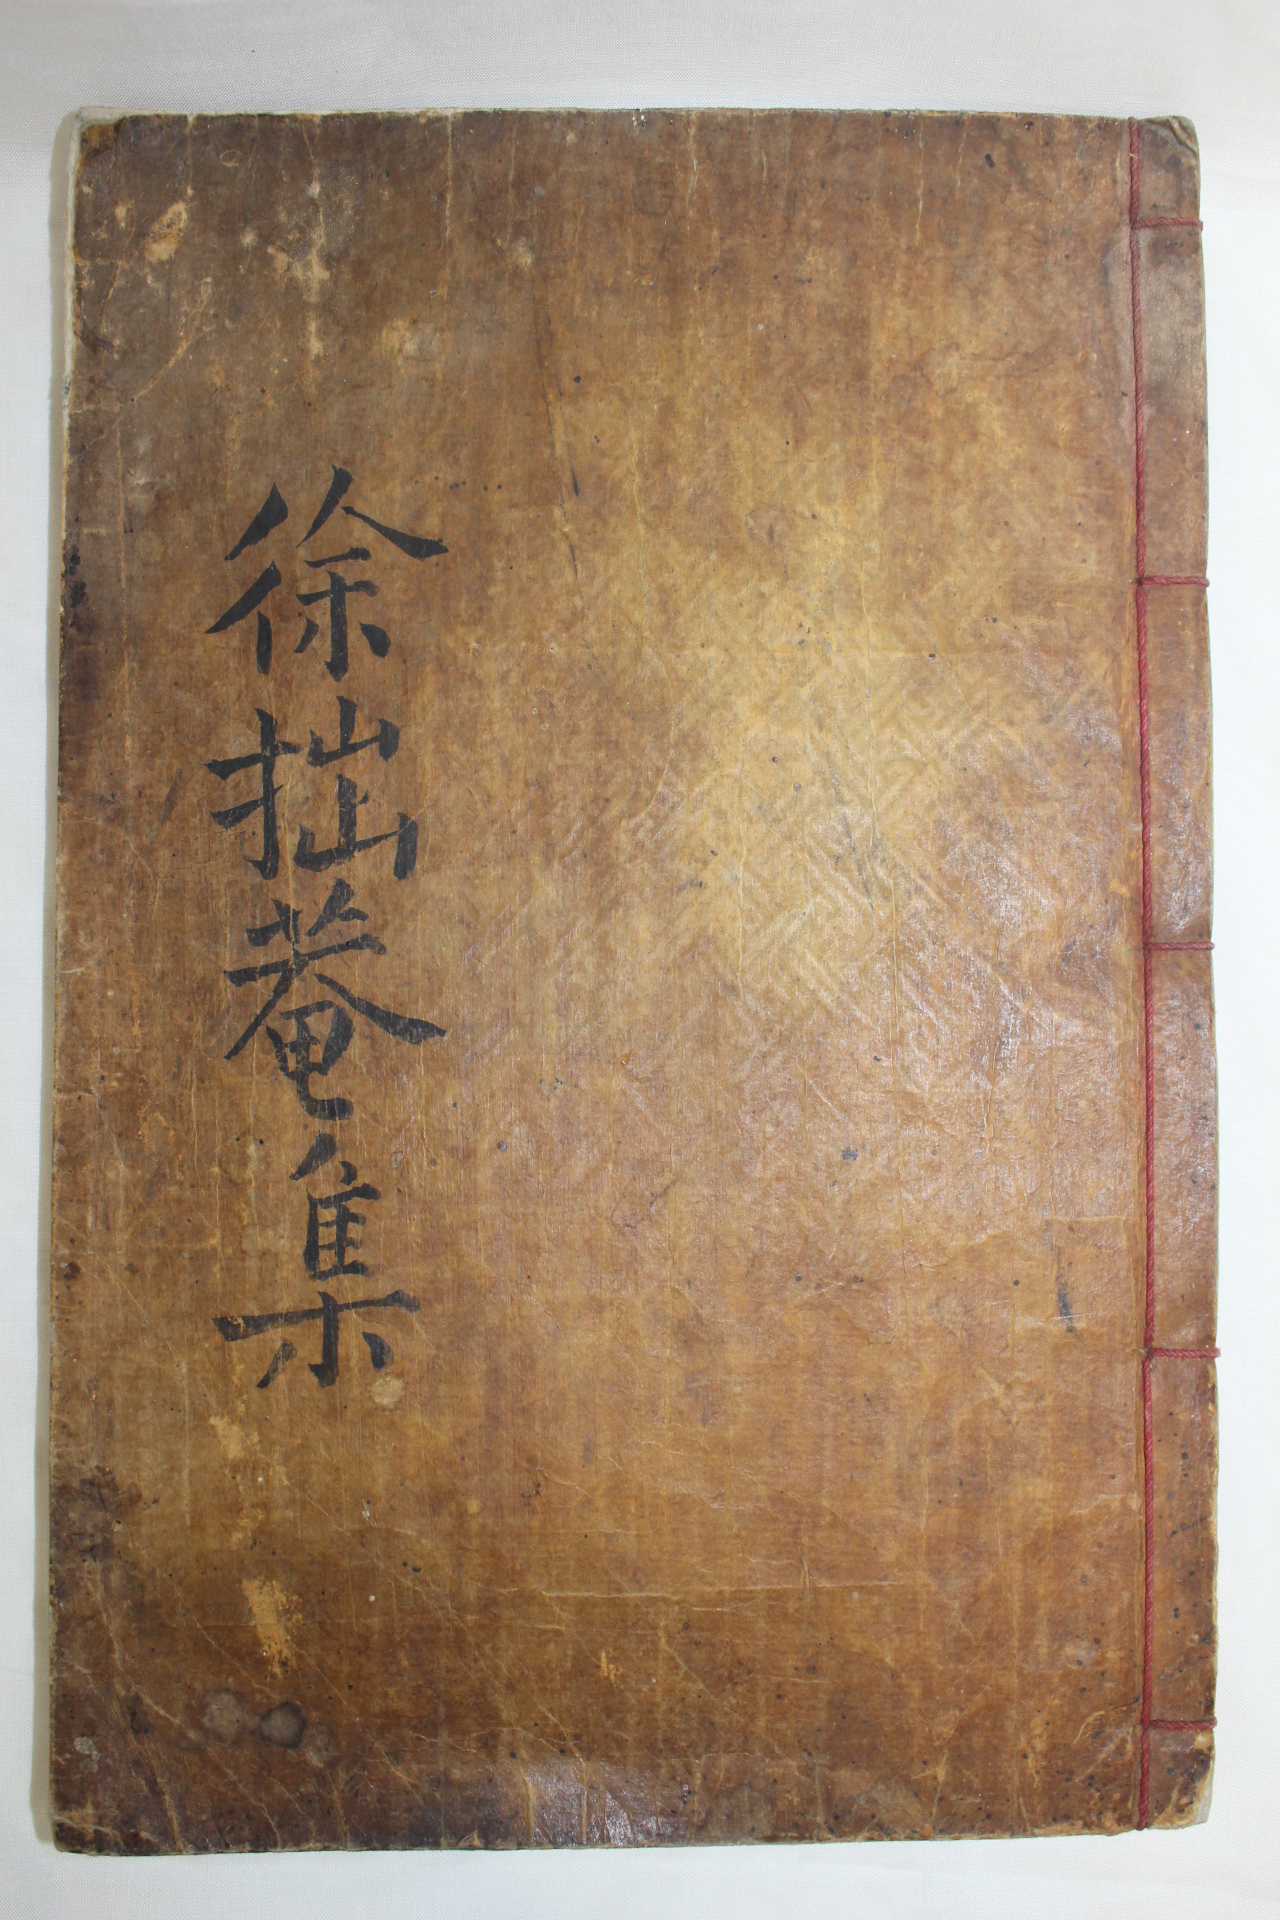 徐拙菴集